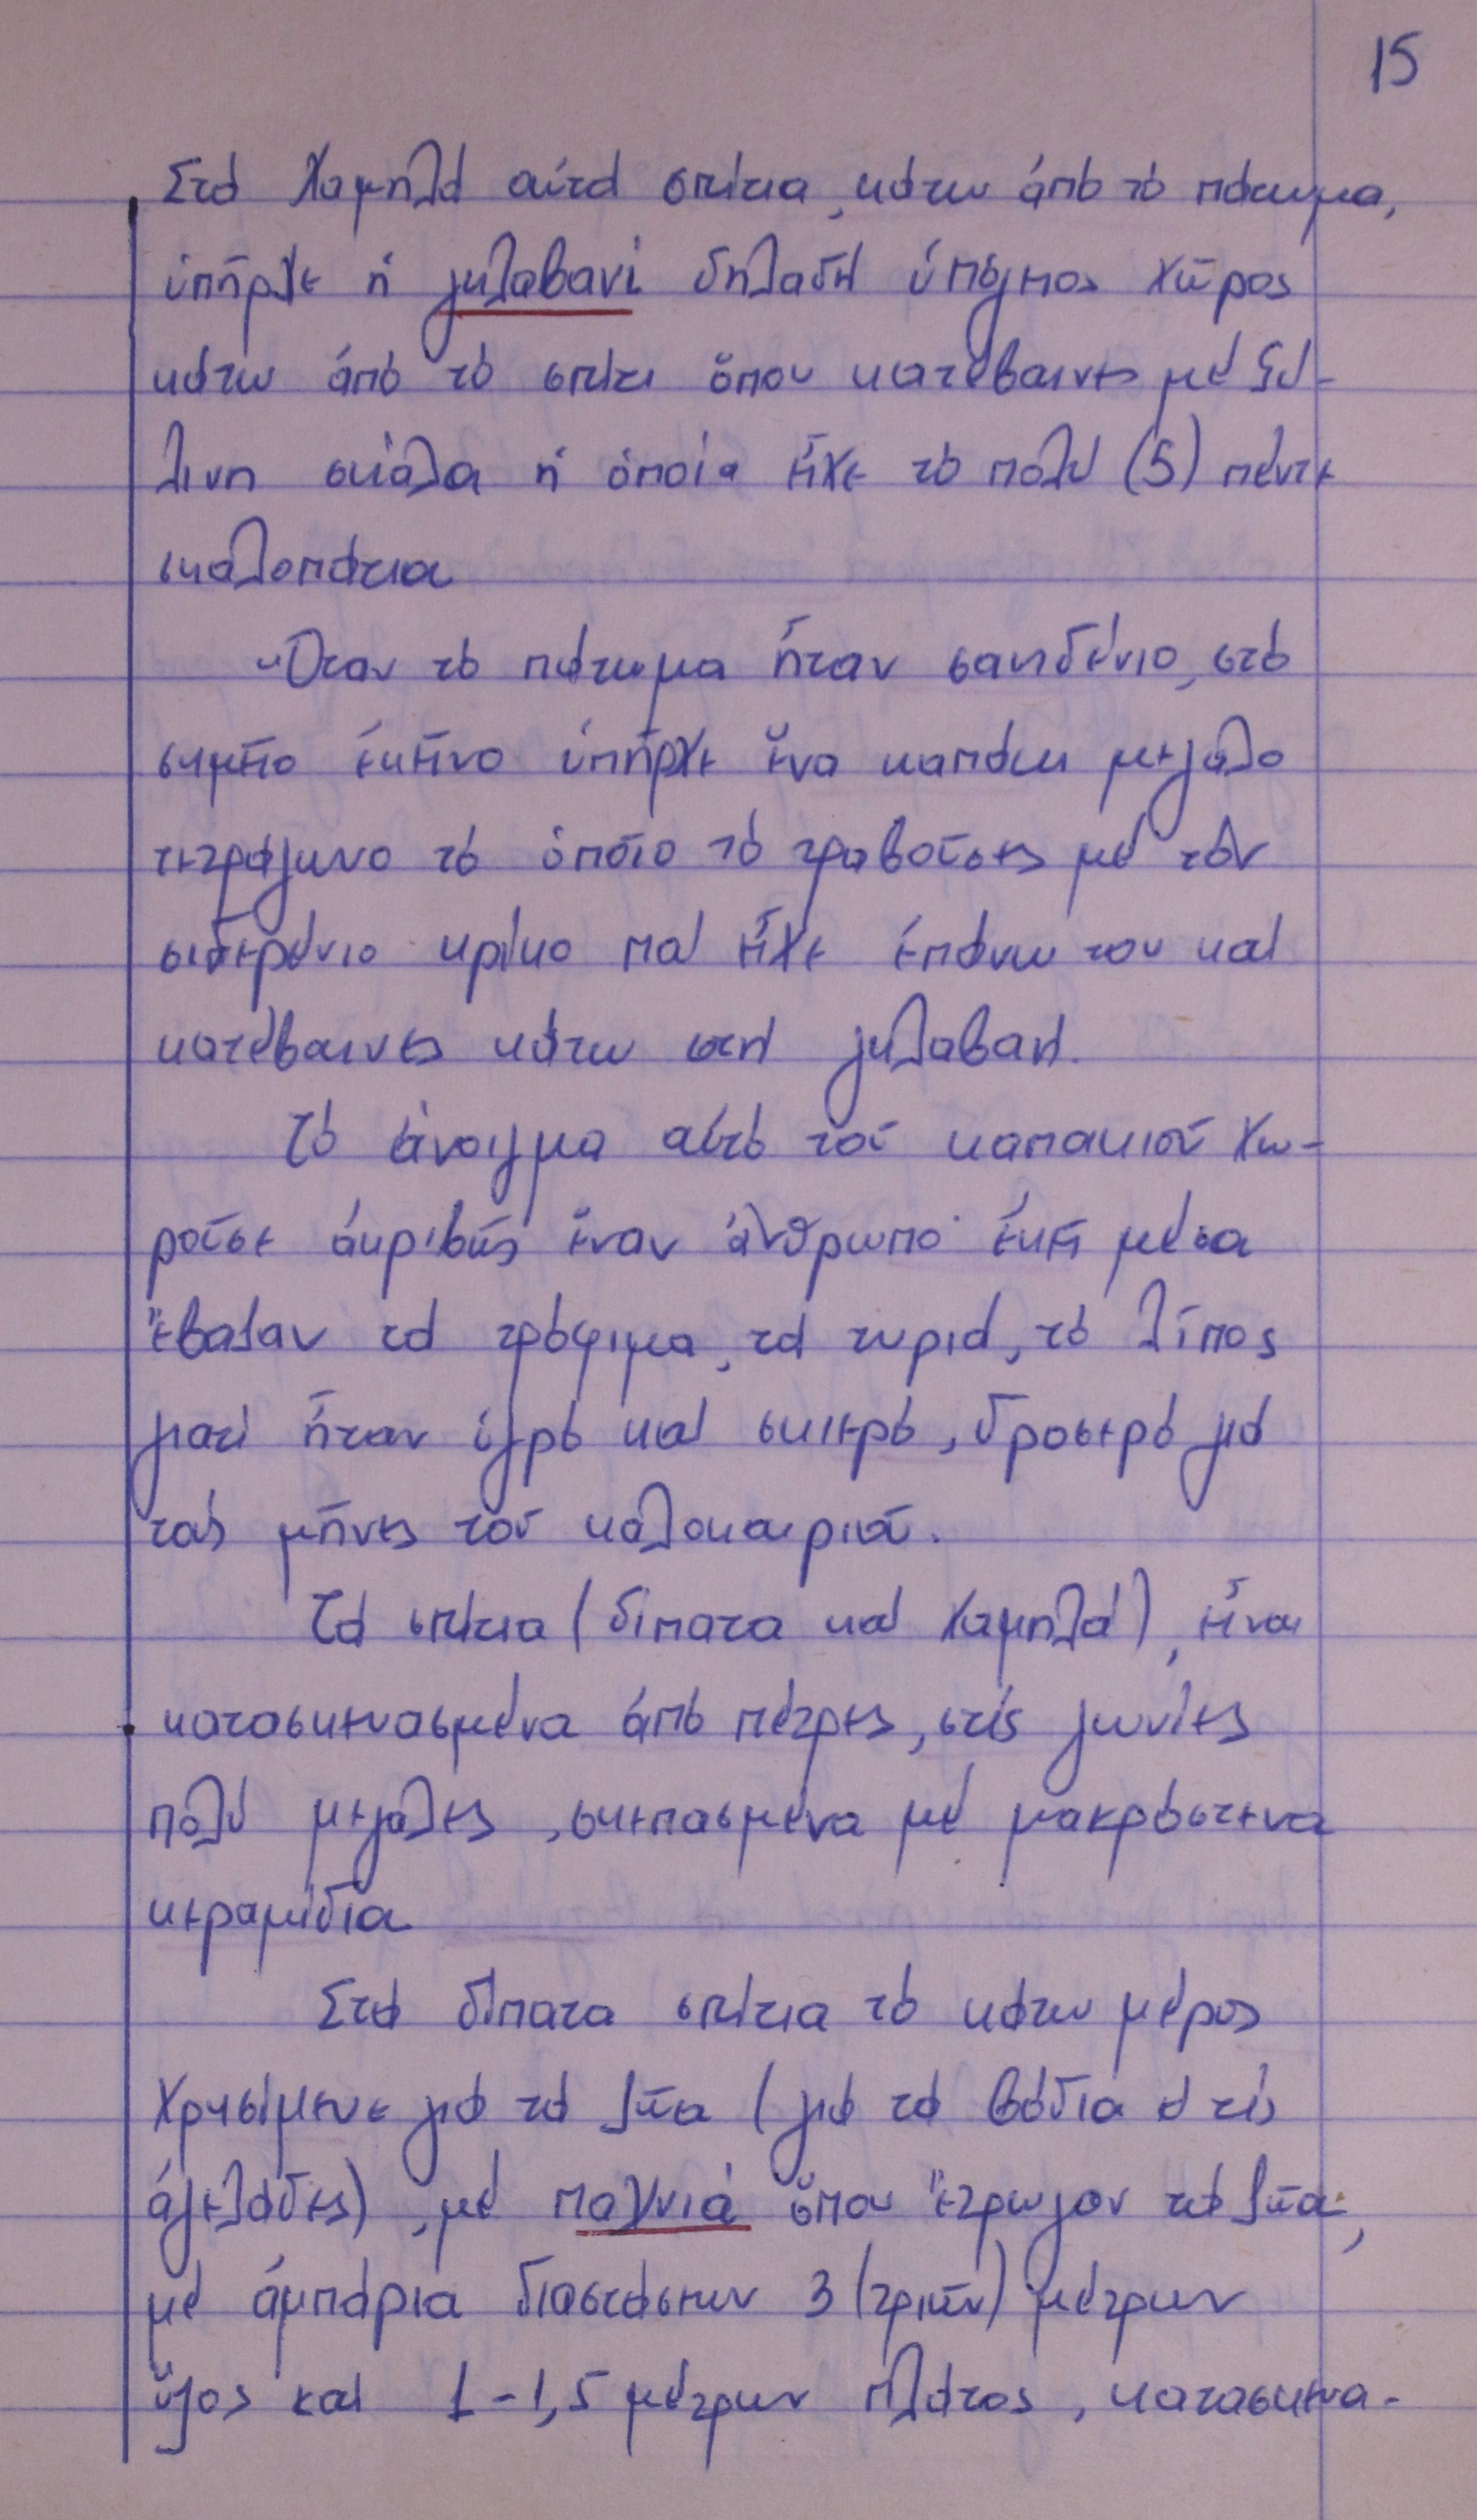 15
Στά χαμηλά αὐτά σπίτια, κάτω ἀπό τό πάτωμα,
ὑπῆρχε ἡ γκλαβανί δηλαδή ὑπόγειος χῶρος
κάτω ἀπό τό σπίτι ὅπου κατέβαινες μέ ξύ-
λινη σκάλα ἡ ὁποία εἶχε τό πολύ (5) πέντε
σκαλοπάτια
Ὅταν τό πάτωμα ἦταν σανιδένιο, στό
σημεῖο ἐκεῖνο ὑπῆρχε ἕνα καπάκι μεγάλο
τετράγωνο τό ὁποῖο τό τραβοῦσες μέ τόν
σιδερένιο κρίκο πού εἶχε ἐπάνω του καί
κατέβαινες κάτω στή γκλαβανή.
Τό ἄνοιγμα αὐτό τοῦ καπακιοῦ χω-
ροῦσε ἀκριβῶς ἕναν ἄνθρωπο· ἐκεῖ μέσα
ἔβαζαν τά τρόφιμα, τά τυριά, τό λίπος
γιατί ἦταν ὑγρό καί σκιερό, δροσερό γιά
τούς μῆνες τοῦ καλοκαιριοῦ.
Τά σπίτια (δίπατα καί χαμηλά), εἶναι
κατασκευασμένα ἀπό πέτρες, στίς γωνίες
πολύ μεγάλες, σκεπασμένα μέ μακρόστενα
κεραμίδια
Στά δίπατα σπίτια τό κάτω μέρος
χρησίμευε γιά τά ζῶα (γιά τά βόδια ἤ τίς
ἀγελάδες), μέ παχνιά ὅπου ἔτρωγαν τά ζῶα,
μέ ἀμπάρια διαστάσεων 3 (τριῶν) μέτρων
ὕψος καί 1-1,5 μέτρων πλάτος, κατασκευα-